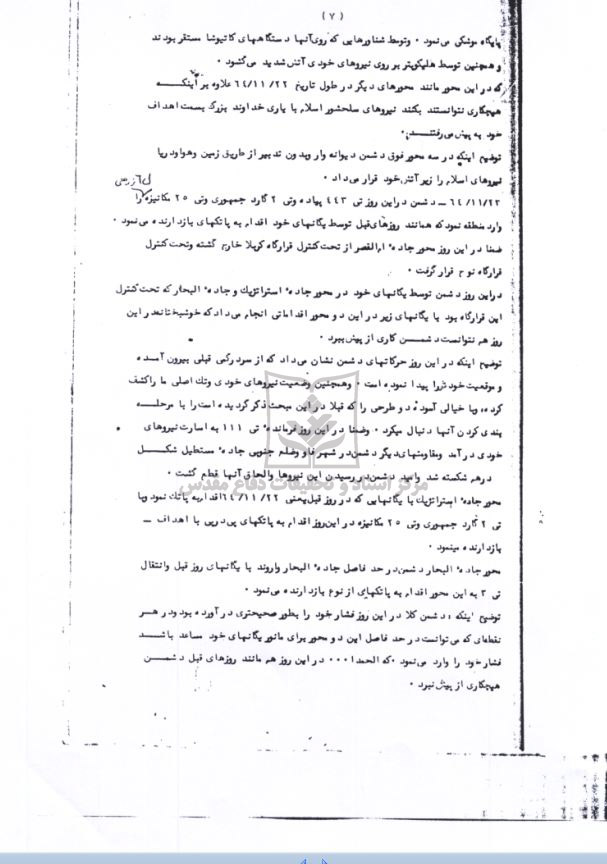 ( ۷ )
پایگاه موشکی می‌نمود ۰ وتوسط شناورهایی که روی آنها دستگاههای کاتیوشا مستقر بودند
و همچنین توسط هلیکوپتر بر روی نیروهای خودی آتش شدید می‌گشود ۰
که در این محور مانند محورهای دیگر در طول تاریخ ۶۴/۱۱/۲۲ علاوه بر اینکـــه
هیچکاری نتوانستند بکنند نیروهای سلحشور اسلام با یاری خداوند بزرگ بسمت اهداف
خود به پیش می‌رفتنـــد ۰
توضیح اینکه در سه محور فوق دشمن دیوانه وار وبدون تدبیر از طریق زمین وهوا ودریا
نیروهای اسلام را زیر آتش خود قرار می‌داد ۰
۶۴/۱۱/۲۳ ــ دشمن در این روز تی ۴۴۳ پیاده وتی ۲ گارد جمهوری وتی ۲۵ مکانیزه را
وارد منطقه نمود که همانند روزهای قبل توسط یگانهای خود اقدام به پاتکهای بازدارنده می‌نمود ۰
ضمنا در این روز محور جاده ام‌القصر از تحت کنترل قرارگاه کربلا خارج گشته وتحت کنترل
قرارگاه نوح قرار گرفت ۰
در این روز دشمن توسط یگانهای خود در محور جاده استراتژیک و جاده البحار که تحت کنترل
این قرارگاه بود با یگانهای زیر در این دو محور اقداماتی انجام می‌داد که خوشبختانه در این
روز هم نتوانست دشمـــن کاری از پیش ببرد ۰
توضیح اینکه در این روز حرکاتهای دشمن نشان می‌داد که از سردرگمی قبلی بیرون آمـده
و موقعیت خود را پیدا نموده است ۰ وهمچنین وضعیت نیروهای خودی وتک اصلی ما را کشف
کرده، وبا خیالی آسوده و طرحی را که قبلا در این مبحث ذکر گردیده است را با مرحلـــه
بندی کردن آنها دنبال میکرد ۰ وضمنا در این روز فرمانده تی ۱۱۱ به اسارت نیروهای
خودی درآمد ومقاومتهای دیگر دشمن در شهر فاو وضلع جنوبی جاده مستطیل شکـــل
درهم شکسته شد وامید دشمن در رسیدن این نیروها والحاق آنها قطع گشت ۰
محور جاده استراتژیک با یگانهایی که در روز قبل یعنی ۶۴/۱۱/۲۲ اقدام به پاتک نمود وبا
تی ۲ گارد جمهوری وتی ۲۵ مکانیزه در این روز اقدام به پاتکهای پی درپی با اهداف ــ
بازدارنده مینمود ۰
محور جاده البحار دشمن در حد فاصل جاده البحار واروند با یگانهای روز قبل وانتقال
تی ۳ به این محور اقدام به پاتکهای از نوع بازدارنده می‌نمود ۰
توضیح اینکه : دشمن کلا در این روز فشار خود را بطور صحیحتری درآورده بود ودر هــر
نقطه‌ای که می‌توانست در حد فاصل این دو محور برای مانور یگانهای خود مساعد باشـــد
فشار خود را وارد می‌نمود ۰که الحمدا۰۰۰ در این روز هم مانند روزهای قبل دشمـــن
هیچکاری از پیش نبرد ۰
مرکز اسناد و تحقیقات دفاع مقدس